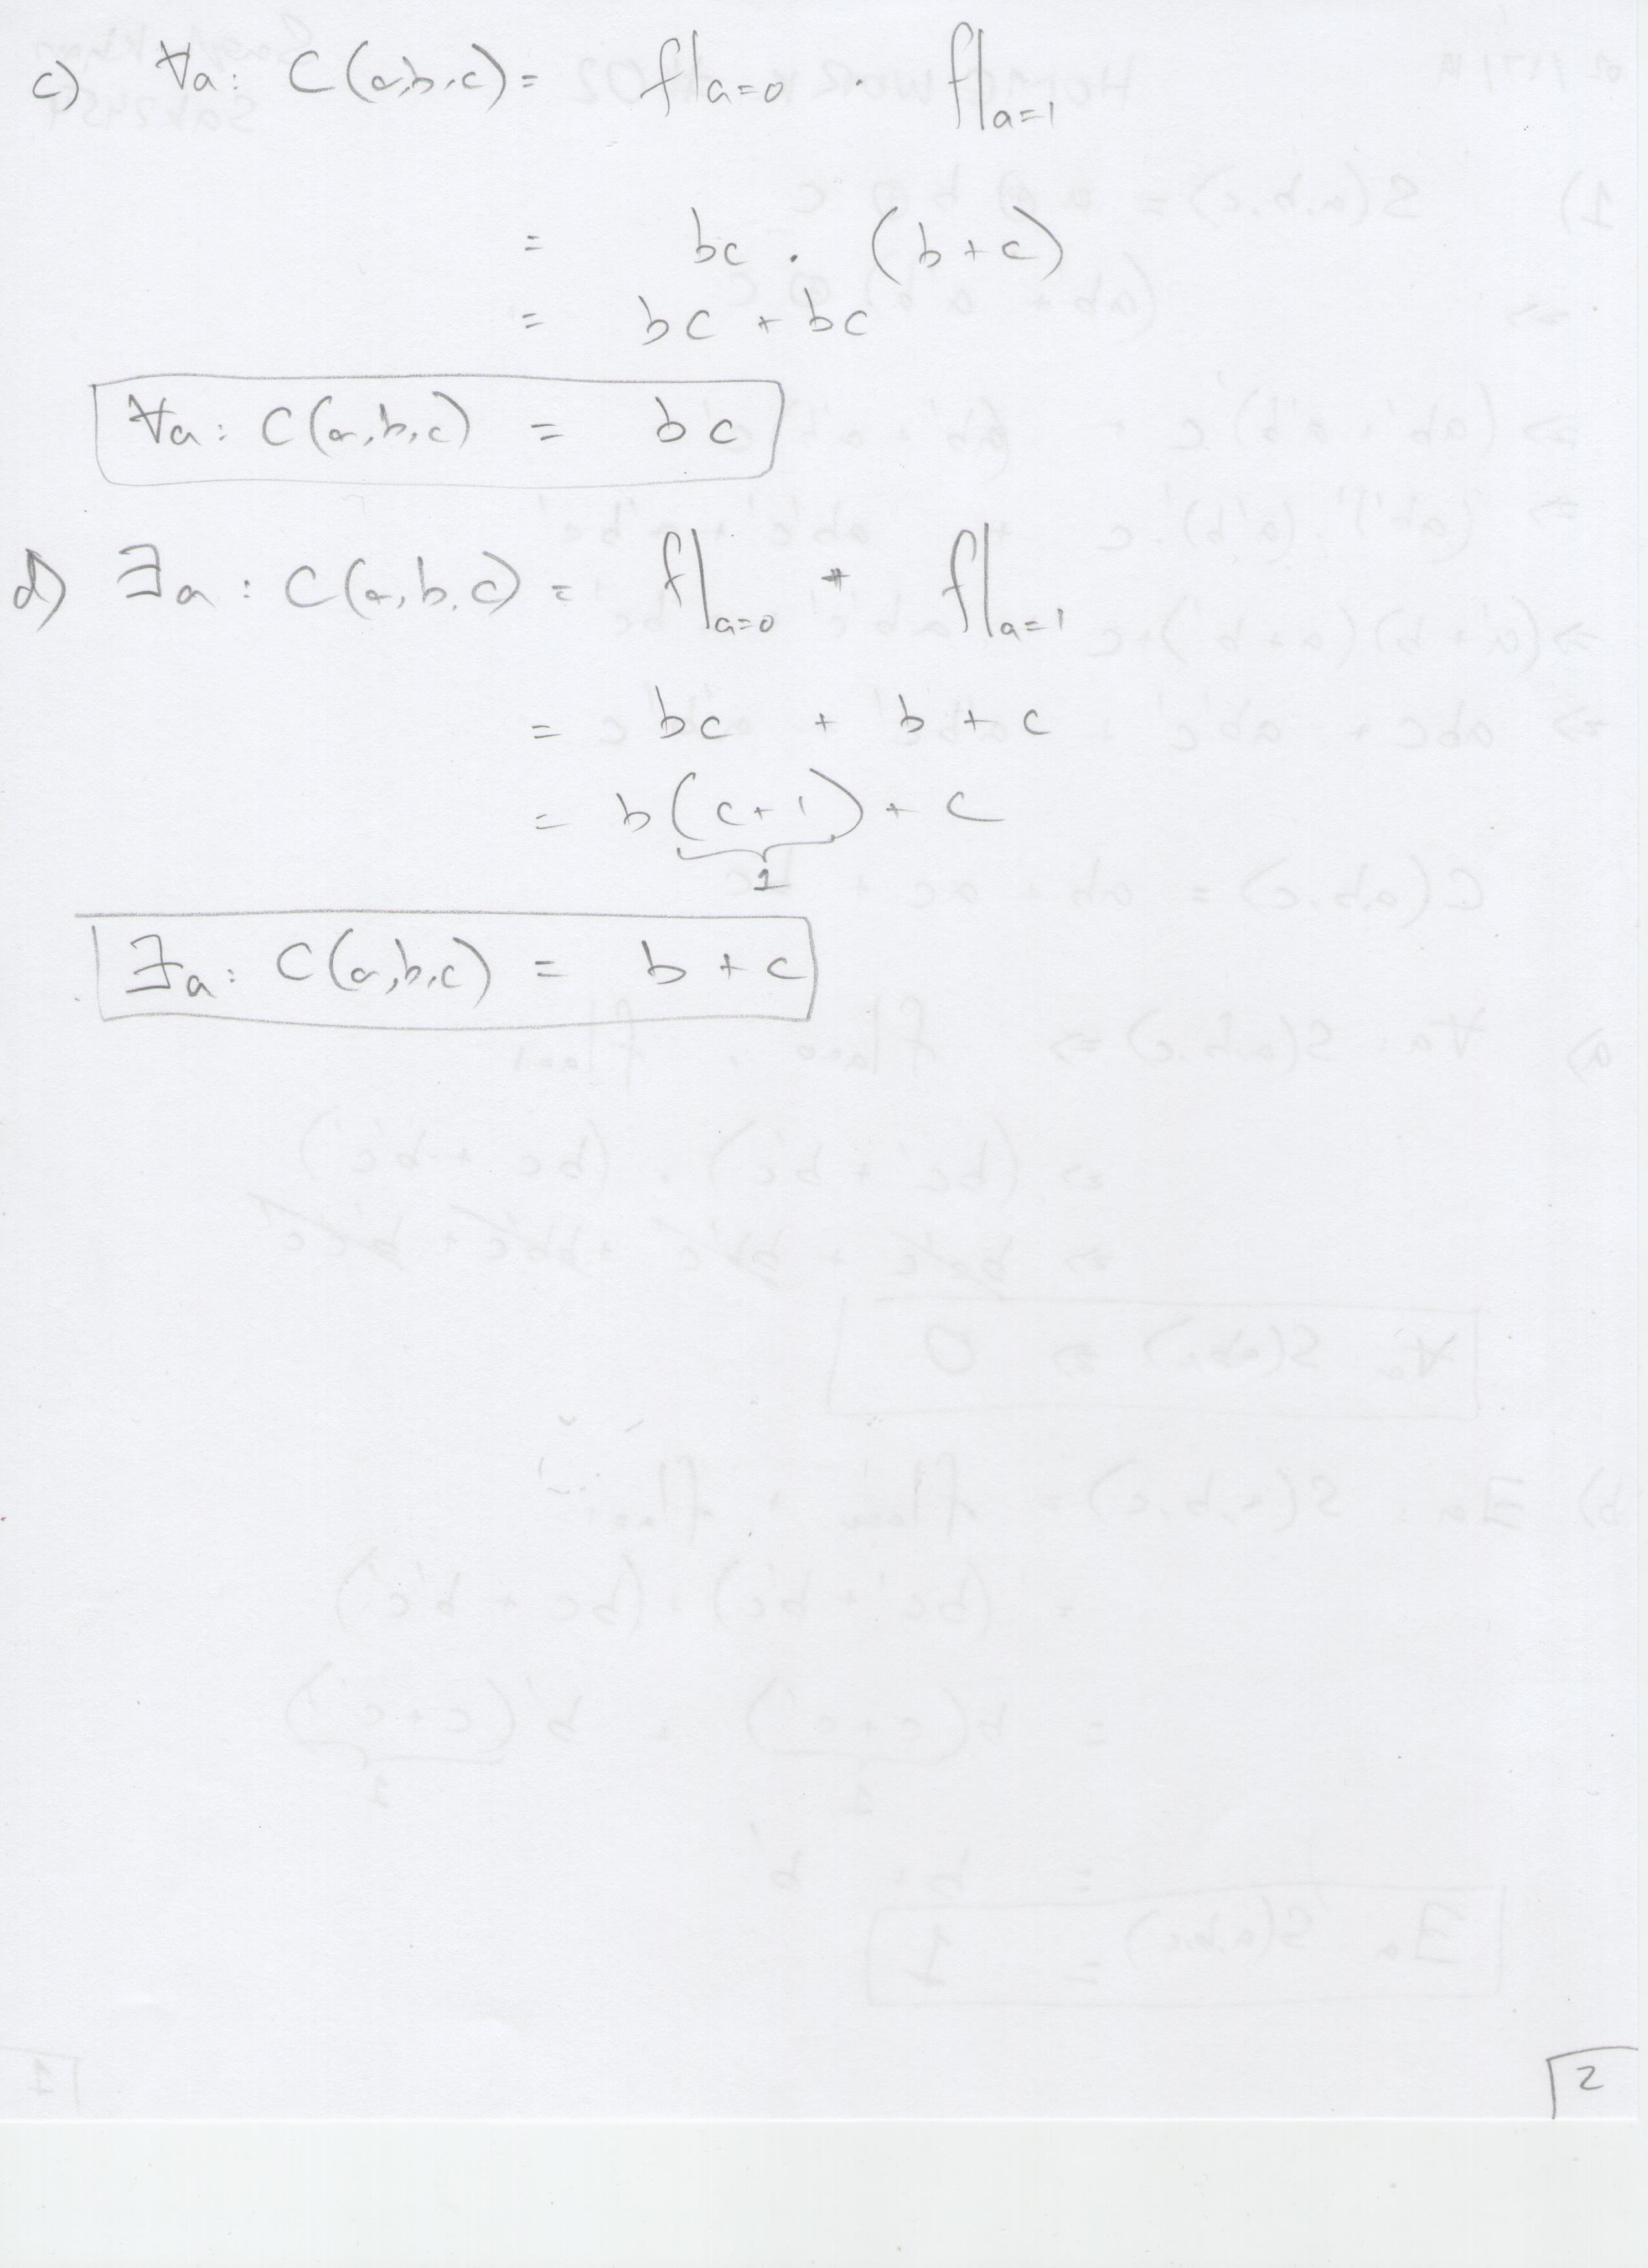 c) ∀a: C(a,b,c) = f|a=0 · f|a=1
= bc . (b+c)
= bc + bc
∀a: C(a,b,c) = bc
d) ∃a: C(a,b,c) = f|a=0 + f|a=1
= bc + b + c
= b(c+1) + c
1
∃a: C(a,b,c) = b + c
2